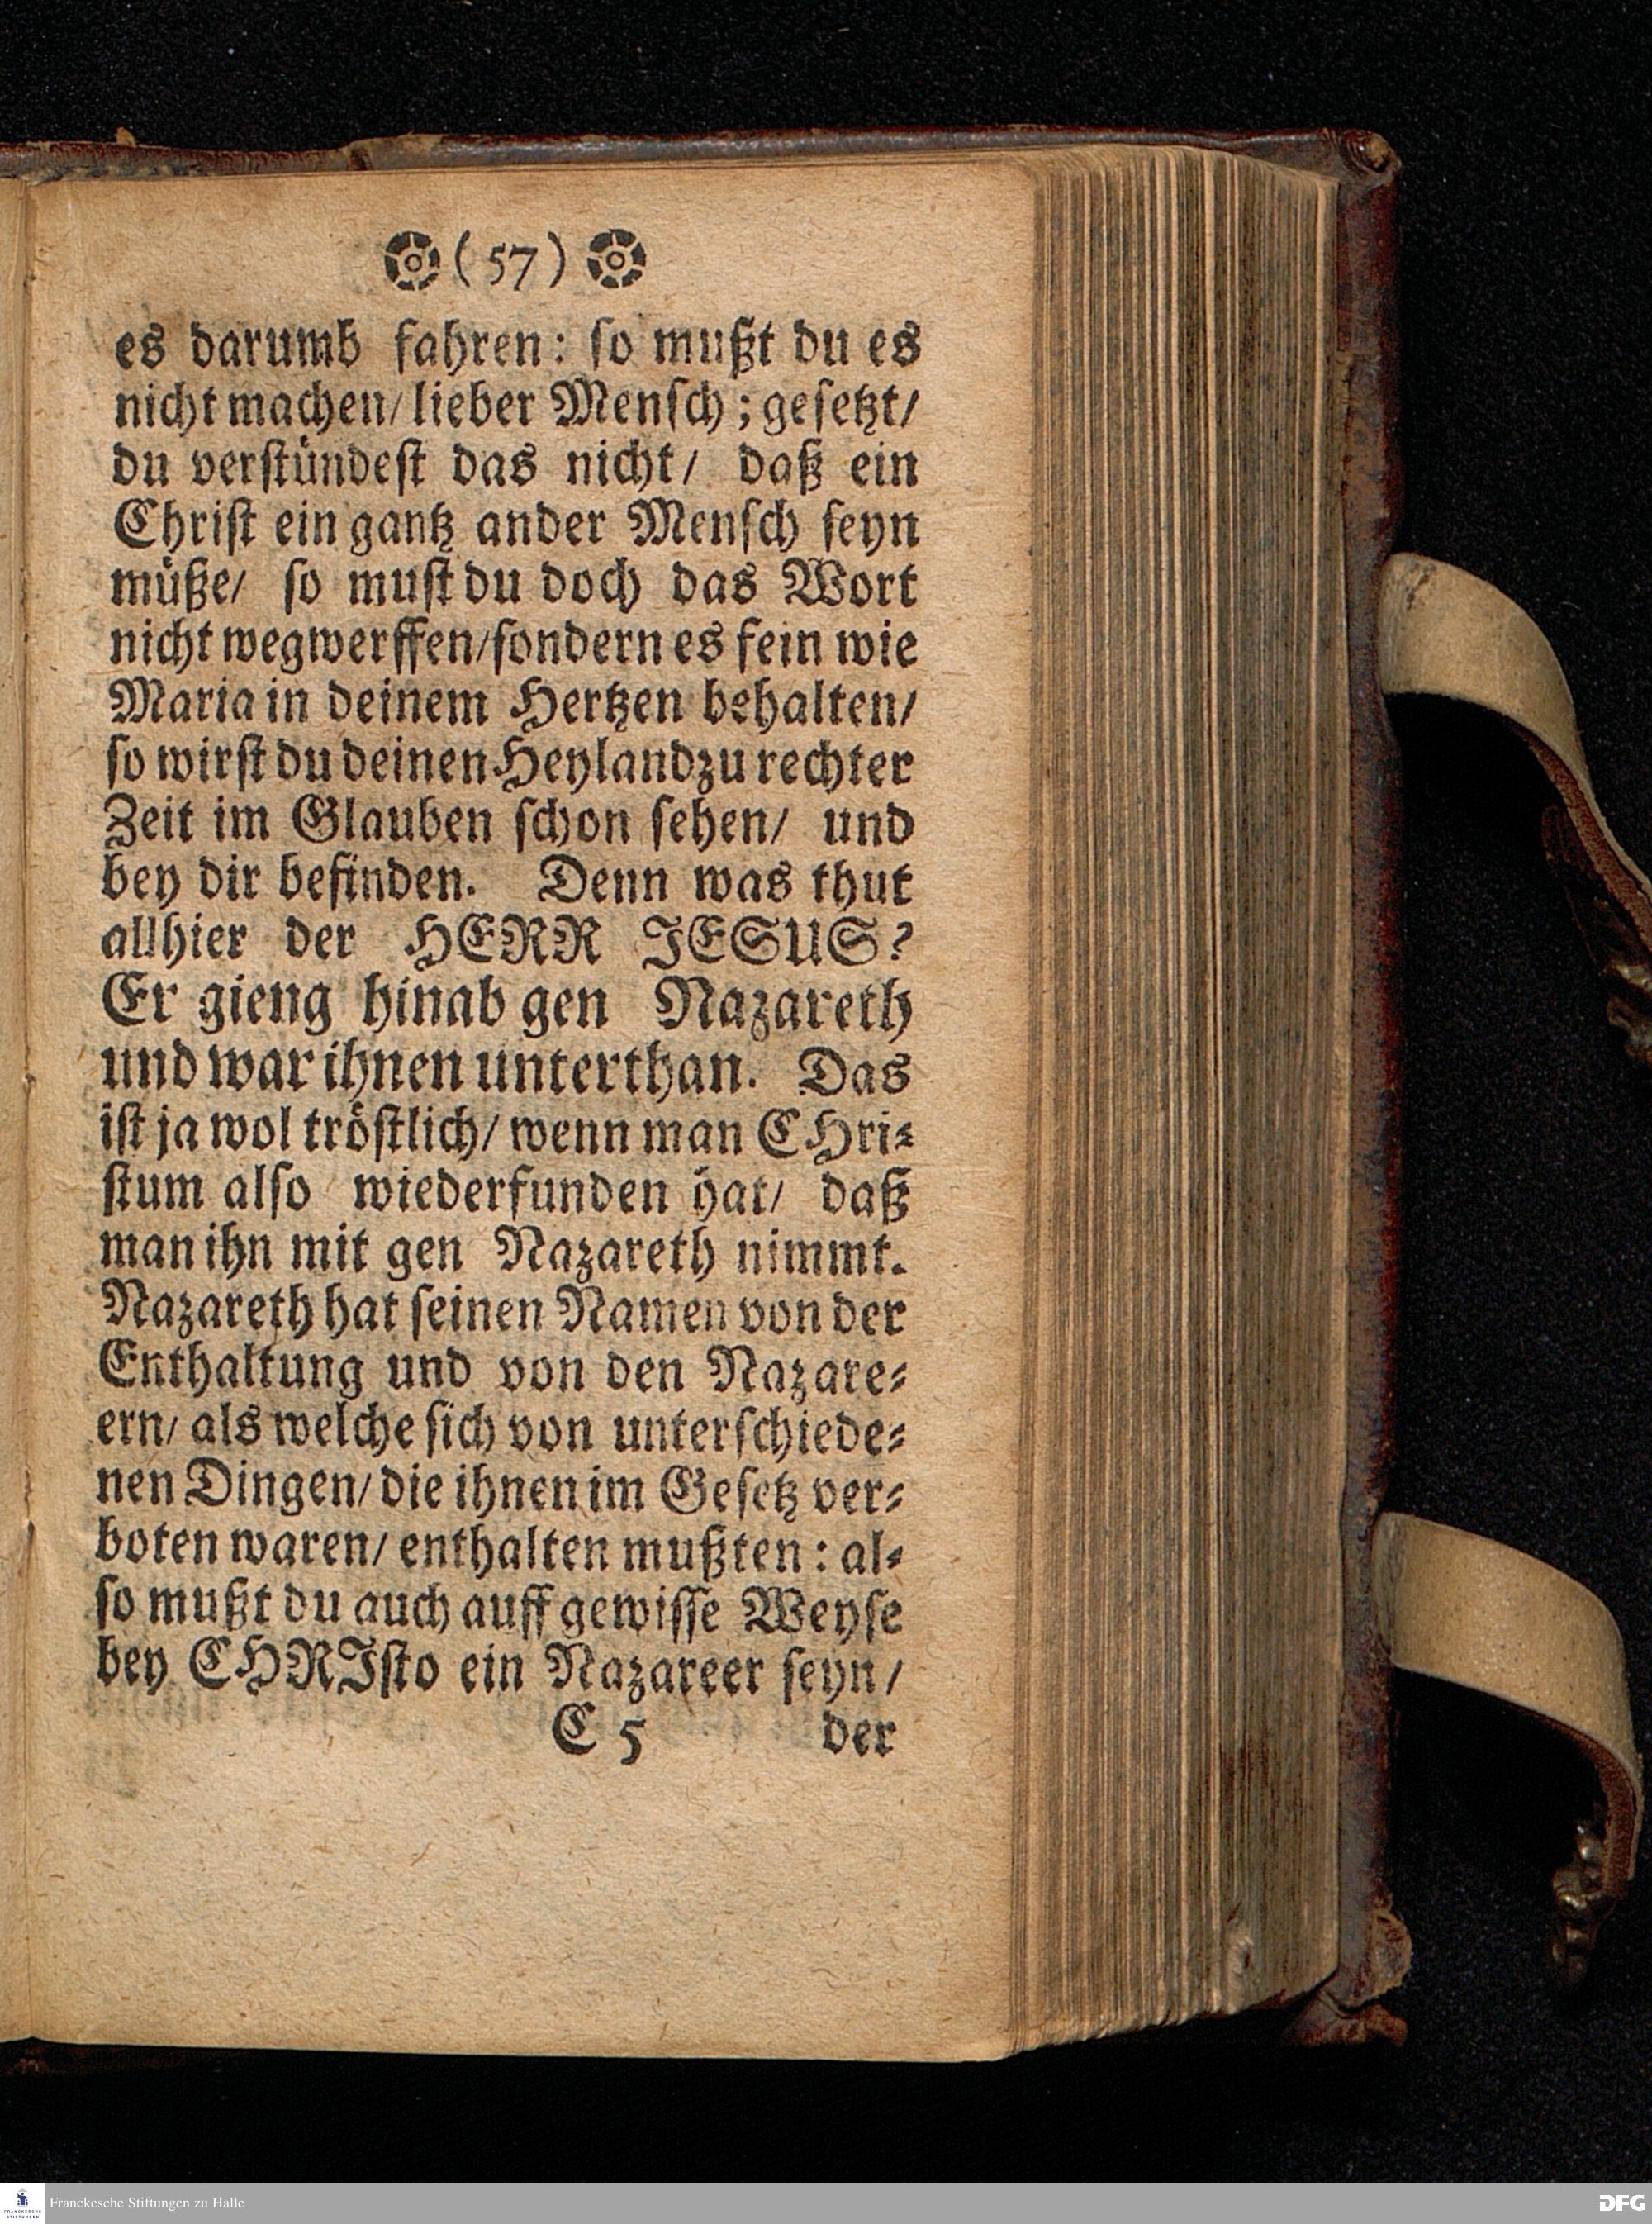 (57)
es darumb fahren: ſo mußt du es
nicht machen/ lieber Menſch; geſetzt/
du verſtündeſt das nicht/ daß ein
Chriſt ein gantz ander Menſch ſeyn
müße/ ſo muſt du doch das Wort
nicht wegwerffen/ſondern es fein wie
Maria in deinem Hertzen behalten/
ſo wirſt du deinen Heyland zu rechter
Zeit im Glauben ſchon ſehen/ und
bey dir befinden. Denn was thut
allhier der HERR JESUS?
Er gieng hinab gen Nazareth
und war ihnen unterthan. Das
iſt ja wol tröſtlich/ wenn man CHri⸗
ſtum alſo wiederfunden hat/ daß
man ihn mit gen Nazareth nimmt.
Nazareth hat ſeinen Namen von der
Enthaltung und von den Nazare⸗
ern/ als welche ſich von unterſchiede⸗
nen Dingen/ die ihnen im Geſetz ver⸗
boten waren/ enthalten mußten: al⸗
ſo mußt du auch auff gewiſſe Weyſe
bey CHRIſto ein Nazareer ſeyn/
C 5 der
Franckesche Stiftungen zu Halle
DFG